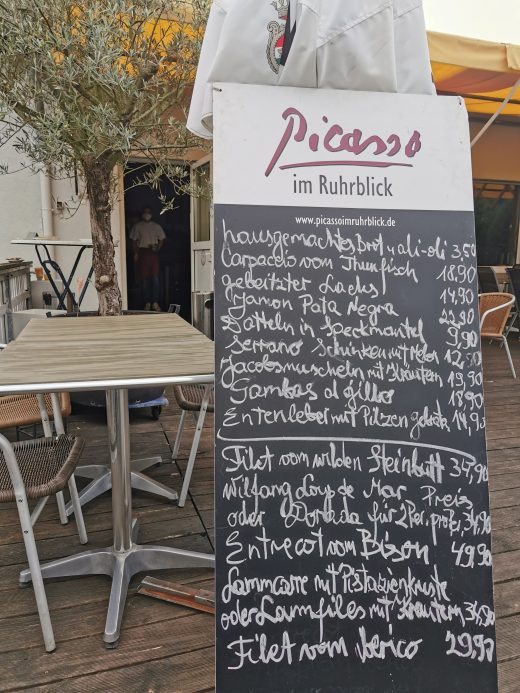 Picasso
im Ruhrblick
www.picassoimruhrblick.de
hausgemachtes Brot u ali-oli 3,50
Carpaccio vom Thunfisch 18,90
gebeitzter Lachs 14,90
Jamon Pata Negra 22,90
Datteln in Speckmantel 9,90
Serrano Schinken mit Melon 12,80
Jacobsmuscheln mit Kräutern 19,90
Gambas al gillo 18,90
Entenleber mit Pilzen 14,95
Filet vom wilden Steinbutt 34,90
Wilfang Loup de Mar Preis
oder Dorada für 2 Per. 34,90
Entrecot vom Bison 49,90
Lammcarre mit Pistazienkruste
oder Lamfiles mit Kräutern 34,90
Filet vom Iverico 29,90